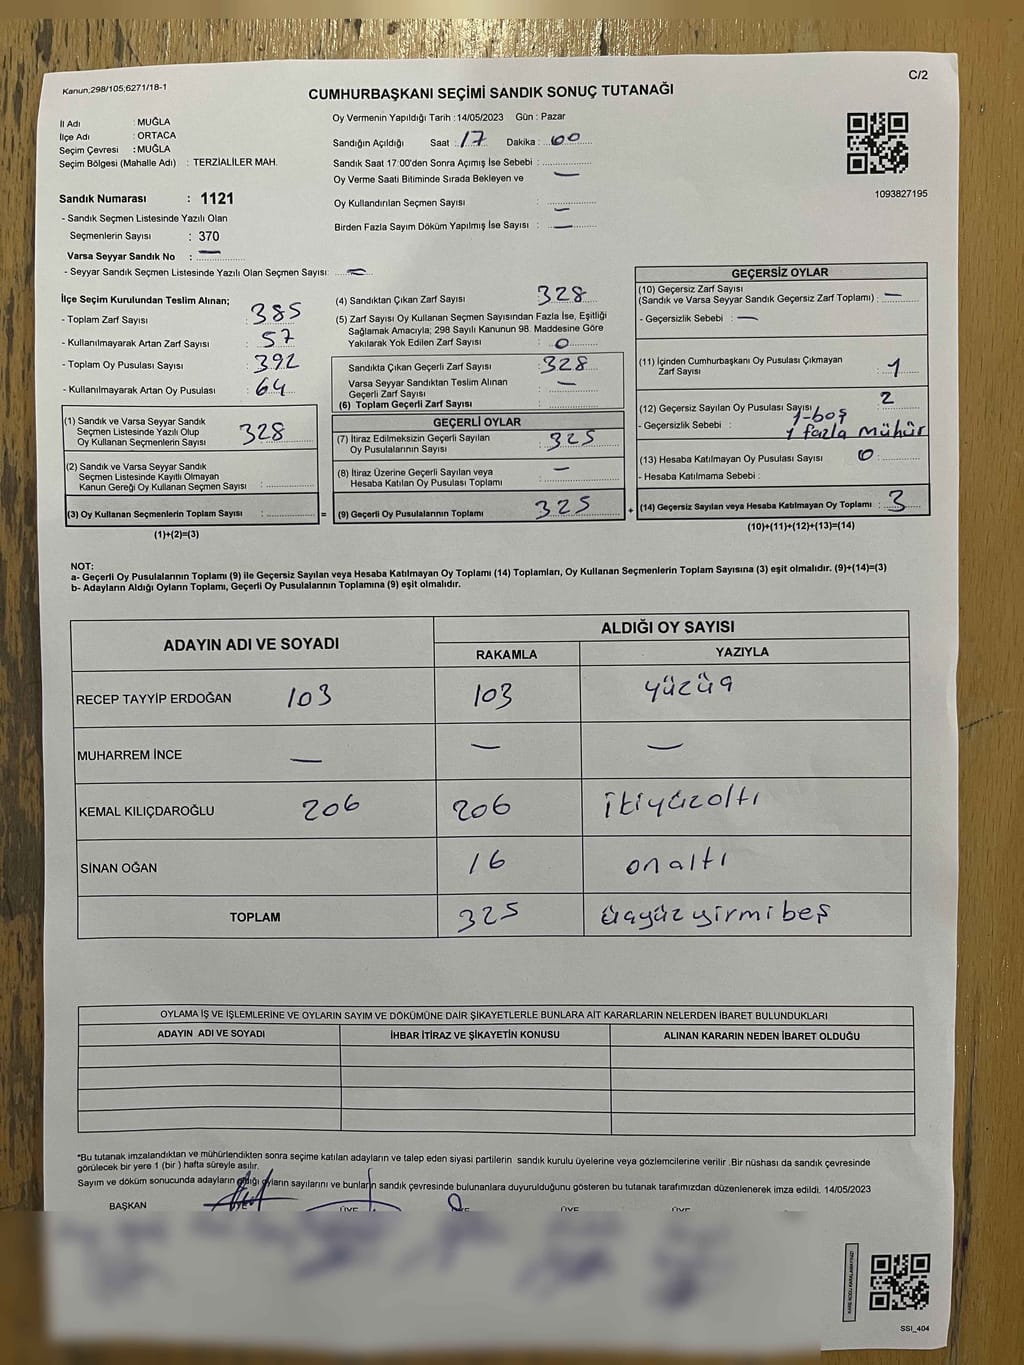 Kanun;298/105;6271/18-1
C/2
CUMHURBAŞKANI SEÇİMİ SANDIK SONUÇ TUTANAĞI
İl Adı : MUĞLA
İlçe Adı : ORTACA
Seçim Çevresi : MUĞLA
Seçim Bölgesi (Mahalle Adı) : TERZİALİLER MAH.
Sandık Numarası : 1121
- Sandık Seçmen Listesinde Yazılı Olan
Seçmenlerin Sayısı : 370
Varsa Seyyar Sandık No : —
- Seyyar Sandık Seçmen Listesinde Yazılı Olan Seçmen Sayısı: —
Oy Vermenin Yapıldığı Tarih : 14/05/2023 Gün : Pazar
Sandığın Açıldığı Saat : 17 Dakika : 00
Sandık Saat 17:00'den Sonra Açımış İse Sebebi :
Oy Verme Saati Bitiminde Sırada Bekleyen ve —
Oy Kullandırılan Seçmen Sayısı : —
Birden Fazla Sayım Döküm Yapılmış İse Sayısı : —
1093827195
İlçe Seçim Kurulundan Teslim Alınan;
- Toplam Zarf Sayısı : 385
- Kullanılmayarak Artan Zarf Sayısı : 57
- Toplam Oy Pusulası Sayısı : 392
- Kullanılmayarak Artan Oy Pusulası : 64
(1) Sandık ve Varsa Seyyar Sandık
Seçmen Listesinde Yazılı Olup
Oy Kullanan Seçmenlerin Sayısı 328
(2) Sandık ve Varsa Seyyar Sandık
Seçmen Listesinde Kayıtlı Olmayan
Kanun Gereği Oy Kullanan Seçmen Sayısı :
(3) Oy Kullanan Seçmenlerin Toplam Sayısı : =
(1)+(2)=(3)
(4) Sandıktan Çıkan Zarf Sayısı : 328
(5) Zarf Sayısı Oy Kullanan Seçmen Sayısından Fazla İse, Eşitliği
Sağlamak Amacıyla; 298 Sayılı Kanunun 98. Maddesine Göre
Yakılarak Yok Edilen Zarf Sayısı : 0
Sandıkta Çıkan Geçerli Zarf Sayısı : 328
Varsa Seyyar Sandıktan Teslim Alınan —
Geçerli Zarf Sayısı :
(6) Toplam Geçerli Zarf Sayısı :
GEÇERLİ OYLAR
(7) İtiraz Edilmeksizin Geçerli Sayılan
Oy Pusulalarının Sayısı : 325
(8) İtiraz Üzerine Geçerli Sayılan veya
Hesaba Katılan Oy Pusulası Toplamı : —
(9) Geçerli Oy Pusulalarının Toplamı : 325 +
GEÇERSİZ OYLAR
(10) Geçersiz Zarf Sayısı
(Sandık ve Varsa Seyyar Sandık Geçersiz Zarf Toplamı) : —
- Geçersizlik Sebebi : —
(11) İçinden Cumhurbaşkanı Oy Pusulası Çıkmayan
Zarf Sayısı : 1
(12) Geçersiz Sayılan Oy Pusulası Sayısı : 2
- Geçersizlik Sebebi : 1-boş
1 fazla mühür
(13) Hesaba Katılmayan Oy Pusulası Sayısı : 0
- Hesaba Katılmama Sebebi :
(14) Geçersiz Sayılan veya Hesaba Katılmayan Oy Toplamı : 3
(10)+(11)+(12)+(13)=(14)
NOT:
a- Geçerli Oy Pusulalarının Toplamı (9) ile Geçersiz Sayılan veya Hesaba Katılmayan Oy Toplamı (14) Toplamları, Oy Kullanan Seçmenlerin Toplam Sayısına (3) eşit olmalıdır. (9)+(14)=(3)
b- Adayların Aldığı Oyların Toplamı, Geçerli Oy Pusulalarının Toplamına (9) eşit olmalıdır.
ADAYIN ADI VE SOYADI
ALDIĞI OY SAYISI
RAKAMLA YAZIYLA
RECEP TAYYİP ERDOĞAN 103 103 yüzüç
MUHARREM İNCE — — —
KEMAL KILIÇDAROĞLU 206 206 ikiyüzaltı
SİNAN OĞAN 16 onaltı
TOPLAM 325 üçyüzyirmibeş
OYLAMA İŞ VE İŞLEMLERİNE VE OYLARIN SAYIM VE DÖKÜMÜNE DAİR ŞİKAYETLERLE BUNLARA AİT KARARLARIN NELERDEN İBARET BULUNDUKLARI
ADAYIN ADI VE SOYADI İHBAR İTİRAZ VE ŞİKAYETİN KONUSU ALINAN KARARIN NEDEN İBARET OLDUĞU
*Bu tutanak imzalandıktan ve mühürlendikten sonra seçime katılan adayların ve talep eden siyasi partilerin sandık kurulu üyelerine veya gözlemcilerine verilir .Bir nüshası da sandık çevresinde
görülecek bir yere 1 (bir ) hafta süreyle asılır.
Sayım ve döküm sonucunda adayların aldığı oyların sayılarını ve bunların sandık çevresinde bulunanlara duyurulduğunu gösteren bu tutanak tarafımızdan düzenlenerek imza edildi. 14/05/2023
BAŞKAN ÜYE ÜYE ÜYE
KARE KODU KARALAMAYINIZ!
SSI_404